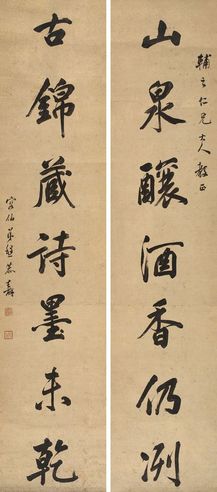 輔之仁兄大人教正
山泉釀酒香仍冽
古錦藏詩墨未乾
容伯弟趙慕壽